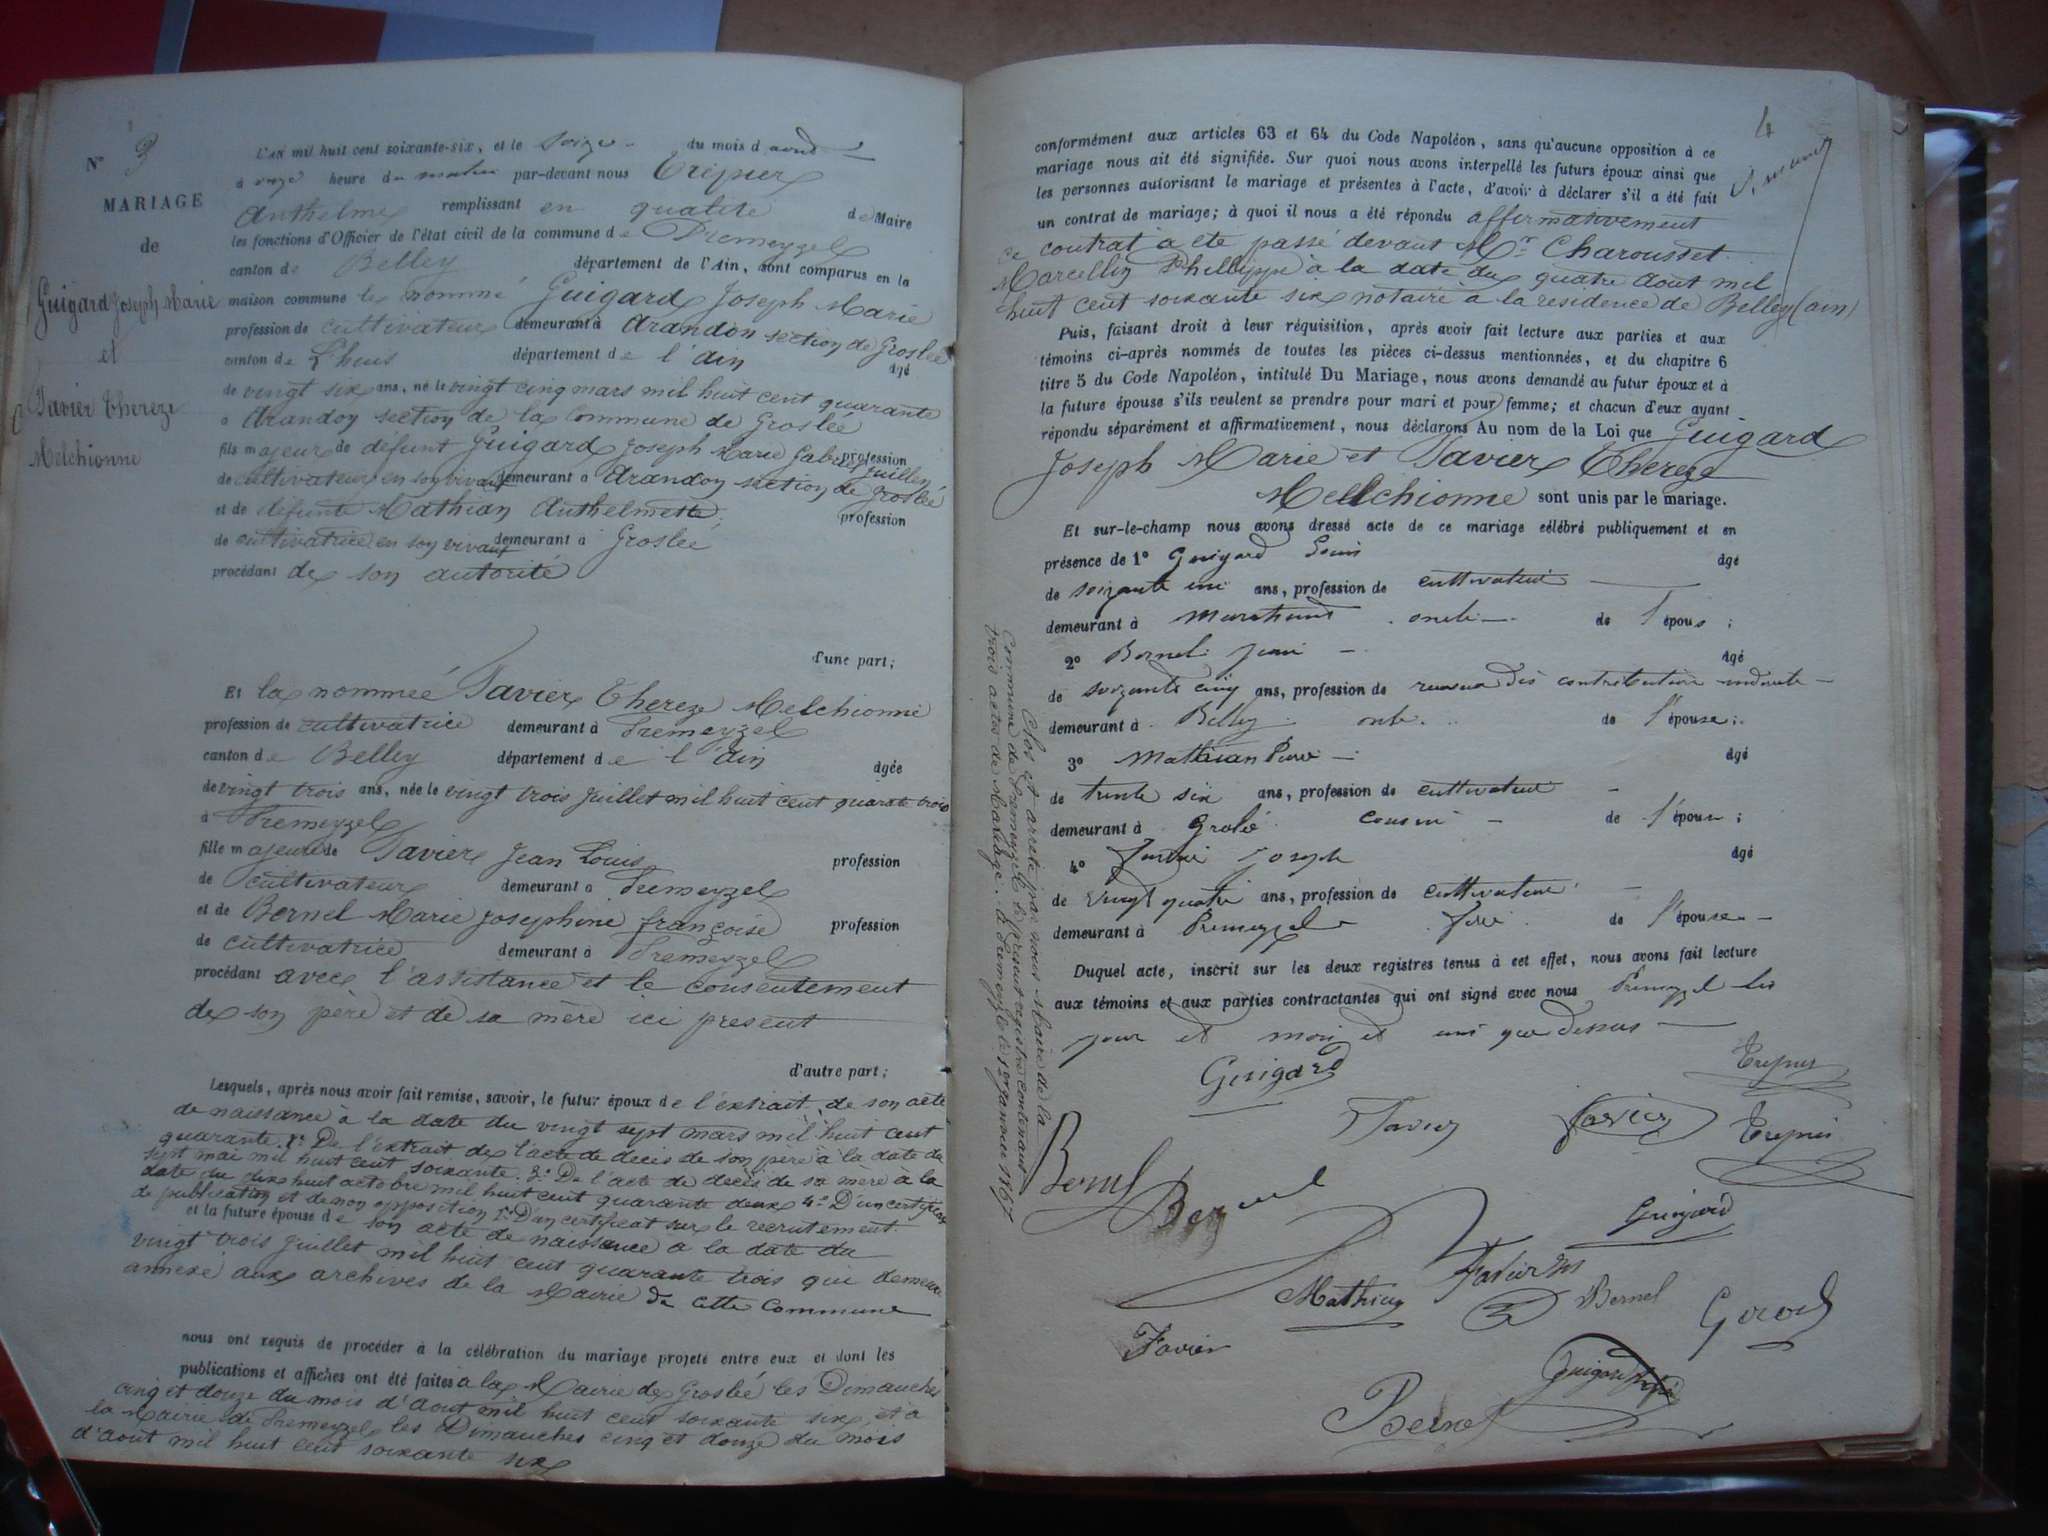 N° 3
MARIAGE
de
Guigard Joseph Marie
et
Favier Thereze
Melchionne
L'AN mil huit cent soixante-six, et le seize du mois d'aout
à onze heure du matin par-devant nous Trépier
Anthelme remplissant en qualité de Maire
les fonctions d'Officier de l'état civil de la commune de Premeyzel
canton de Belley département de l'Ain, sont comparus en la
maison commune le nommé Guigard Joseph Marie
profession de cultivateur demeurant à Arandon section de Groslée
canton de L'huis département de l'ain âgé
de vingt six ans, né le vingt cinq mars mil huit cent quarante
a Arandon section de la Commune de Groslée
fils majeur de défunt Guigard Joseph Marie Gabriel Juillen profession
de cultivateur en son vivant demeurant a Arandon section de Groslée
et de défunte Mathian Anthelmette profession
de cultivatrice en son vivant demeurant à Groslée
procédant de son autorité
d'une part;
Et la nommée Favier Thereze Melchionne
profession de cultivatrice demeurant à Premeyzel
canton de Belley département de l'ain âgée
de vingt trois ans, née le vingt trois Juillet mil huit cent quarante trois
à Premeyzel
fille majeure de Favier Jean Louis profession
de cultivateur demeurant a Premeyzel
et de Bernel Marie Josephine françoise profession
de cultivatrice demeurant à Premeyzel
procédant avec l'assistance et le consentement
de son père et de sa mère ici present
d'autre part;
Lesquels, après nous avoir fait remise, savoir, le futur époux de l'extrait de son acte
de naissance à la date du vingt sept mars mil huit cent
quarante. 2° De l'extrait de l'acte de décès de son père à la date du
sept mai mil huit cent soixante. 3° De l'acte de décès de sa mère à la
date du dix huit octobre mil huit cent quarante deux 4° D'un certificat
de publication et de non opposition 5° D'un certificat sur le recrutement
et la future épouse de son acte de naissance a la date du
vingt trois Juillet mil huit cent quarante trois qui demeure
annexé aux archives de la Mairie de cette Commune
nous ont requis de procéder à la célébration du mariage projeté entre eux et dont les
publications et affiches ont été faites a la Mairie de Groslée les Dimanches
cinq et douze du mois d'Aout mil huit cent soixante six, et à
la Mairie de Premeyzel les Dimanches cinq et douze du mois
d'aout mil huit cent soixante six
4
conformément aux articles 63 et 64 du Code Napoléon, sans qu'aucune opposition à ce
mariage nous ait été signifiée. Sur quoi nous avons interpellé les futurs époux ainsi que
les personnes autorisant le mariage et présentes à l'acte, d'avoir à déclarer s'il a été fait
un contrat de mariage; à quoi il nous a été répondu affirmativement
ce contrat a été passé devant Mr Charousset
Marcellin Phillippe à la date du quatre Aout mil
huit cent soixante six notaire à la residence de Belley (ain)
Puis, faisant droit à leur réquisition, après avoir fait lecture aux parties et aux
témoins ci-après nommés de toutes les pièces ci-dessus mentionnées, et du chapitre 6
titre 5 du Code Napoléon, intitulé Du Mariage, nous avons demandé au futur époux et à
la future épouse s'ils veulent se prendre pour mari et pour femme; et chacun d'eux ayant
répondu séparément et affirmativement, nous déclarons Au nom de la Loi que Guigard
Joseph Marie et Favier Thereze
Mellchionne sont unis par le mariage.
Et sur-le-champ nous avons dressé acte de ce mariage célébré publiquement et en
présence de 1° Guigard Louis âgé
de soixante un ans, profession de cultivateur
demeurant à oncle de l'époux;
2° Bernel Jean âgé
de soixante cinq ans, profession de receveur des contributions indirecte
demeurant à Belley oncle de l'épouse;
3° Mathian Pierre âgé
de trente six ans, profession de cultivateur
demeurant à Grolée cousin de l'époux;
4° Favier Joseph âgé
de vingt quatre ans, profession de cultivateur
demeurant à Premeyzel frère de l'épouse
Duquel acte, inscrit sur les deux registres tenus à cet effet, nous avons fait lecture
aux témoins et aux parties contractantes qui ont signé avec nous Premeyzel les
jour et mois et ans que dessus
Clos et arreté par nous Maire de la
Commune de Premeyzel le present registre contenant
trois actes de Mariage. à Premeyzel le 1er janvier 1867
Guigard
Trepier
Favier
Favier
Trepier
Bernel
Bernel
Guigard
Mathieu
Favier
Bernel
Girod
Favier
Guigard
Bernel